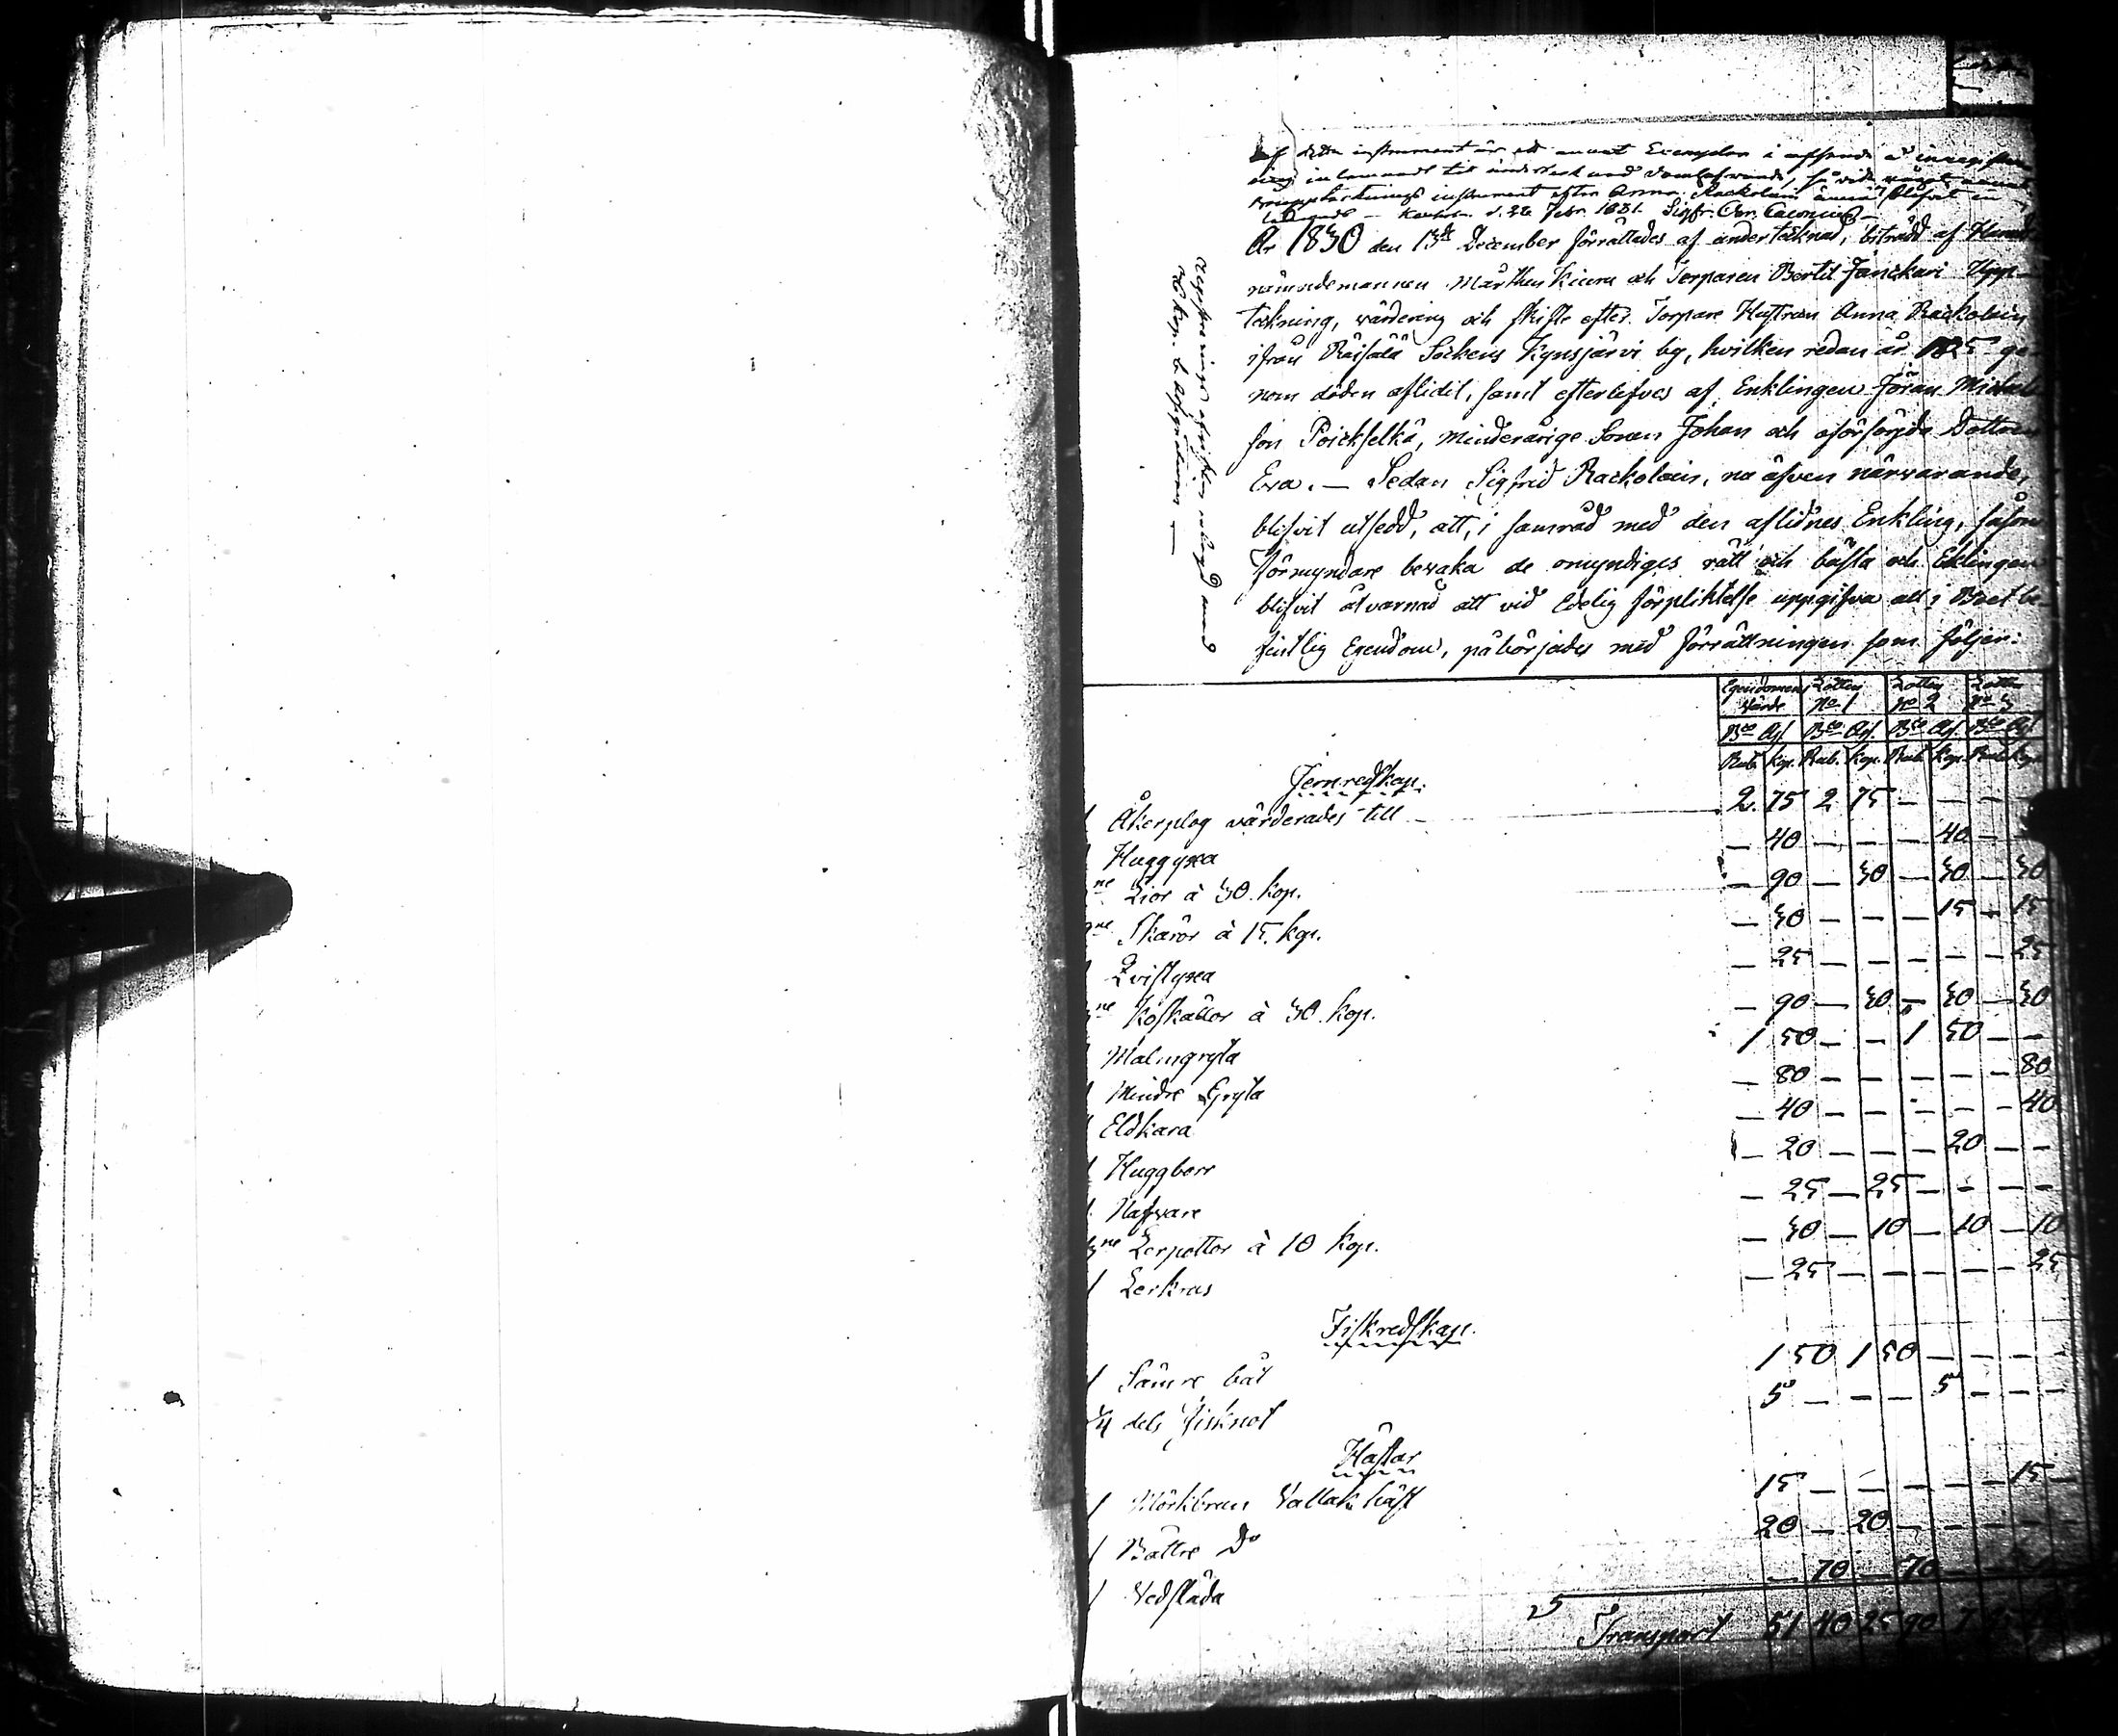 Af detta instrument är ett annat Exemplar i afseende å inregistre-
ring inlemnadt till
instrument efter Anna Rackolain blifvit in
d. 26 Febr. 1831. Sigfr. Chr.
År 1830 den 13de December förrättades af undertecknad, biträdd af Härads
nämndemannen Mårthen Kiuru och Torparen Bertil Jänickari Upp-
tekning, värdering och skifte efter Torpare Hustrun Anna Rackolain
ifrån Räisälä Sockens Kynsjärvi by, hvilken redan år 1825 ge-
nom döden aflidit, samt efterlefves af Enklingen Jöran Michels
son Poickselkä, minderårige Sonen Johan och oförsörjda Dottren
Eva. — Sedan Sigfrid Rackolain, nu äfven närvarande,
blifvit utsedd, att, i samråd med den aflidnes Enkling, såsom
Förmyndare bevaka de omyndiges rätt och bästa och Eklingen
blifvit åtvarnad att vid Edelig förpliktelse uppgifva all i Boet be-
fintlig Egendom, påbörjades med förrättningen som följer:
Egendomens värde Lotten No 1 Lotten No 2 Lotten No 3
Bco Ass. Bco Ass. Bco Ass. Bco Ass.
Rub. Kop. Rub. Kop. Rub. Kop. Rub. Kop.
Jernredskap.
1 Åkerplog värderades till — 2 75 2 75 — — — —
1 Huggyxa — 40 — — — 40 — —
3ne Lior à 30 kop. — 90 — 30 — 30 — 30
2ne Skäror à 15 kop. — 30 — — — 15 — 15
1 Qvistyxa — 25 — — — — — 25
3ne Koskällor à 30 kop. — 90 — 30 — 30 — 30
1 Malmgryta 1 50 — — 1 50 — —
1 Mindre Gryta — 80 — — — — — 80
1 Eldkara — 40 — — — — — 40
1 Huggborr — 20 — — — 20 — —
1 Nafvare — 25 — 25 — — — —
3ne Lerpottor à 10 kop. — 30 — 10 — 10 — 10
1 Lerkrus — 25 — — — — — 25
Fiskredskap.
1 Sämre båt 1 50 1 50 — — — —
1/4 dels fisknot 5 — — — 5 — — —
Hästar
1 Mörkbrun Vallack häst 15 — — — — — 15 —
1 Bättre Do 20 — 20 — — — — —
1 Vedsläda — 70 — 70 — — — —
Transport 51 40 25 90